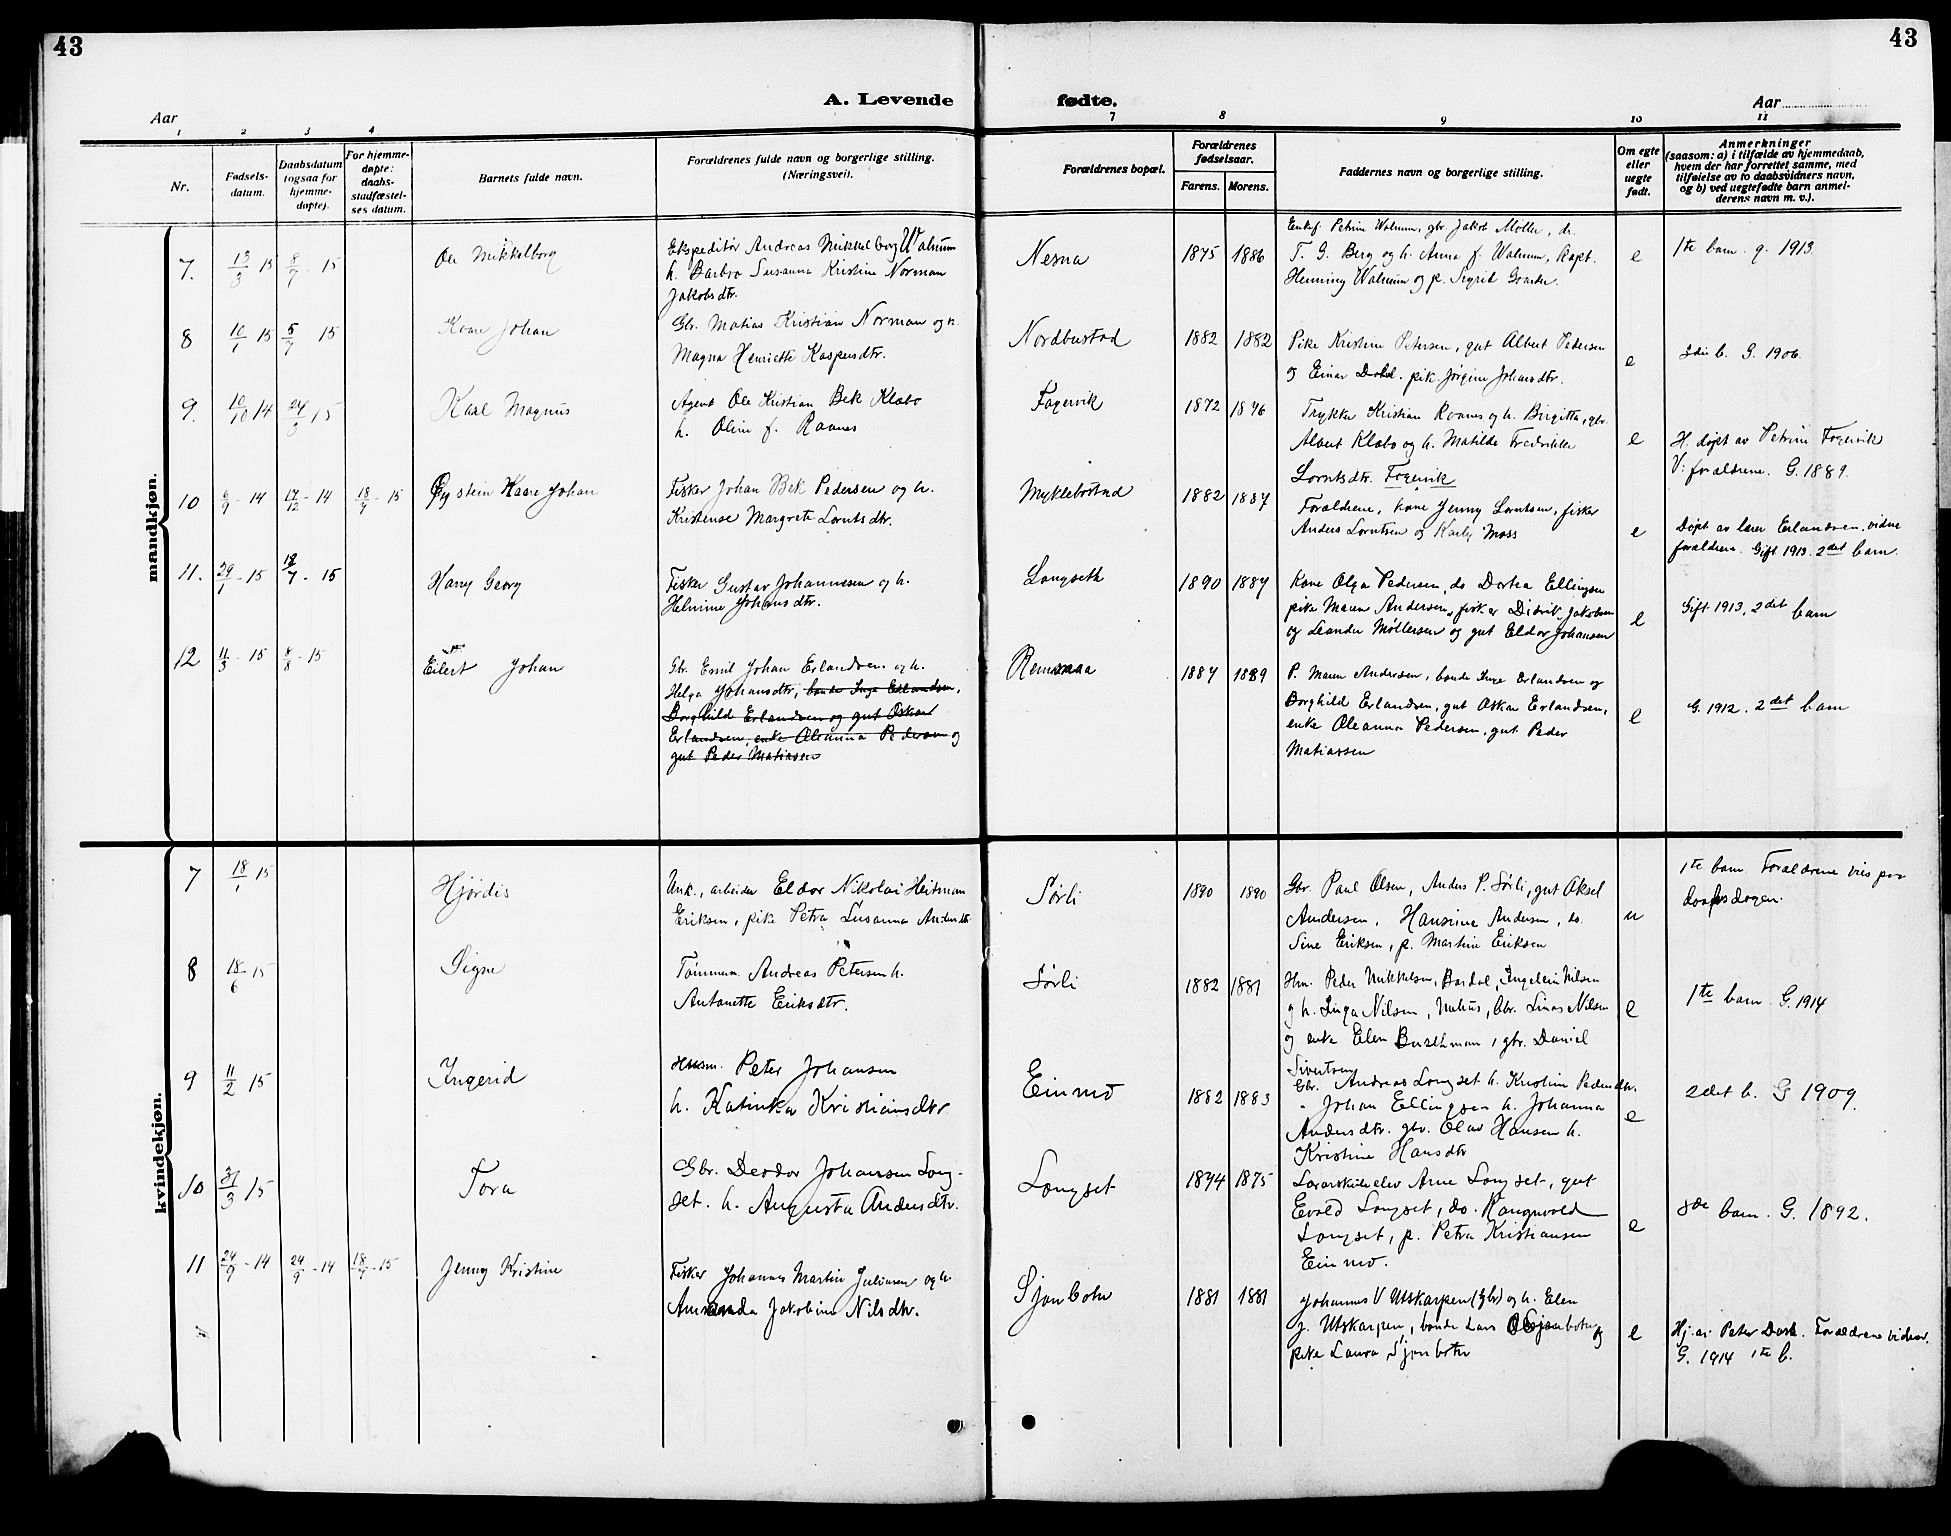 43
43
A. Levende fødte.
Aar
Aar
1 2 3 4
7 8 9 10 11
Nr.
Fødsels-
datum.
Daabsdatum
(ogsaa for
hjemme-
døpte).
For hjemme-
døpte:
daabs-
stadfæstel-
ses datum.
Barnets fulde navn.
Forældrenes fulde navn og borgerlige stilling.
(Næringsvei).
Forældrenes bopæl.
Forældrenes
fødselsaar.
Farens. Morens.
Faddernes navn og borgerlige stilling.
Om egte
eller
uegte
født.
Anmerkninger
(saasom: a) i tilfælde av hjemmedaab,
hvem der har forrettet samme, med
tilføielse av to daabsvidners navn,
og b) ved uegtefødte barn anmel-
derens navn m. v.).
mandkjøn.
7. 13/3 15 8/7 - 15
Ole Mikkelborg
Ekspeditør Andreas Mikkelborg Walnum
h. Barbro Susanna Kristine Norman
Jakobsdtr.
Nesna
1875 1886
Enkef. Petrine Walnum, gbr. Jakob Møller, dr.
T. G. Berg og h. Anna f. Walnum, Kapt.
Henning Walnum og p. Sigrid
e
1te barn. g. 1913.
8 10/1 15 5/7 15
Kaare Johan
Gbr. Matias Kristian Norman og h.
Magna Henriette Kaspersdtr.
Nordbustad
1882 1882
Pike Kristine Petersen, gut Albert Pedersen
og Einar Dahl. pik. Jørgine Johansdtr.
e
b. G. 1906.
9. 10/10 14 24/5 15
Karl Magnus
Agent Ole Kristian Bek Klæbo
h. Oline f. Raanes
Fagervik
1872 1876
Trykker Kristian Raanes og h. Birgitte, gbr.
Albert Klæbo og h. Matilde Fredrikke
Lorntsdtr. Fagervik
e
H. døpt av Petrine Fagervik
V: forældrene. G. 1889.
10 6/9 - 14 17/12 - 14 18/7 - 15
Øystein Kaare Johan
Fisker Johan Bek Pedersen og h.
Kristense Margrete Lorntsdtr.
Myklebostad
1882 1887
Forældrene, kone Jenny Lorntsen, fisker
Anders Lorntsen og Karly Moss
e
Døpt av lærer Erlandsen, vidne
forældrene. Gift 1913. 2det barn.
11. 29/1 - 15 18/7 - 15
Harry Georg
Fisker Gustav Johannesen og h.
Helmine Johansdtr.
Langseth
1890 1887
Kone Olga Pedersen, do Dortea Ellingsen
pike Maren Andersen, fisker Didrik Jakobsen
og Leander Møllersen og gut Eldor Johansen
e
Gift 1913, 2det barn
12 11/3 - 15 8/8 - 15
Eilert Johan
Gbr. Emil Johan Erlandsen og h.
Helga Johansdtr, bonde Inge Erlandsen,
Borghild Erlandsen og gut Oskar
Erlandsen, enke Oleanna Pedersen og
gut Peder Matiasen
Remmaa
1887 1889
P. Maren Andersen, bonde Inge Erlandsen og
Borghild Erlandsen, gut Oskar Erlandsen,
enke Oleanna Pedersen, gut Peder
Matiassen
e
G. 1912. 2det barn
kvindekjøn.
7 18/1 15
Hjørdis
Unk., arbeider Eldor Nikolai Heitman
Eriksen, pike Petra Susanna Andersdtr
Sørli
1890 1890
Gbr. Paul Olsen, Anders P. Sørli, gut Aksel
Andersen, Hansine Andersen, do.
Sine Eriksen, p. Martine Eriksen
u
1te barn Forældrene vies paa
daapsdagen.
8 18/6 15
Signe
Tømmerm. Andreas Petersen h.
Antonette Eriksdtr.
Sørli
1882 1881
Hm. Peder Mikkelsen, Bardal, Ingeleiv Nilsen
og h. Inga Nilsen, Nilsen
og enke Elen Buschman, gbr. Daniel
Sivertsen
e
1te barn. G. 1914
9 11/2 15
Ingerid
Husm. Peter Johansen
h. Katinka Kristiansdtr
Einmo
1882 1883
Gbr. Andreas Langset h. Kristine Pedersdtr.
" Johan Ellingsen h. Johanna
Andersdtr. gbr. Olav Hansen h.
Kristine Hansdtr
e
2det b. G 1909.
10 31/3 15
Tora
Gbr. Deodor Johansen Lang-
set. h. Augusta Andersdtr.
Langset
1874 1875
Lærarskuleelev Arne Langset, gut
Evald Langset, do. Rangvald
Langset, p. Petra Kristiansen
Einmo.
e
8de barn. G. 1892.
11 24/9 - 14 24/9 - 14 18/7 - 15
Jenny Kristine
Fisker Johannes Martin Juliussen og h.
Amanda Jakobine Nilsdtr.
Sjonbotn
1881 1881
Johannes V Utskarpen (Gbr) og h. Elen
J. Utskarpen, bonde Lars O Sjonbotn og
pike Laura Sjonbotn
e
Hj. av Peter Dahl. Forældrene vidner.
G. 1914 1te b.